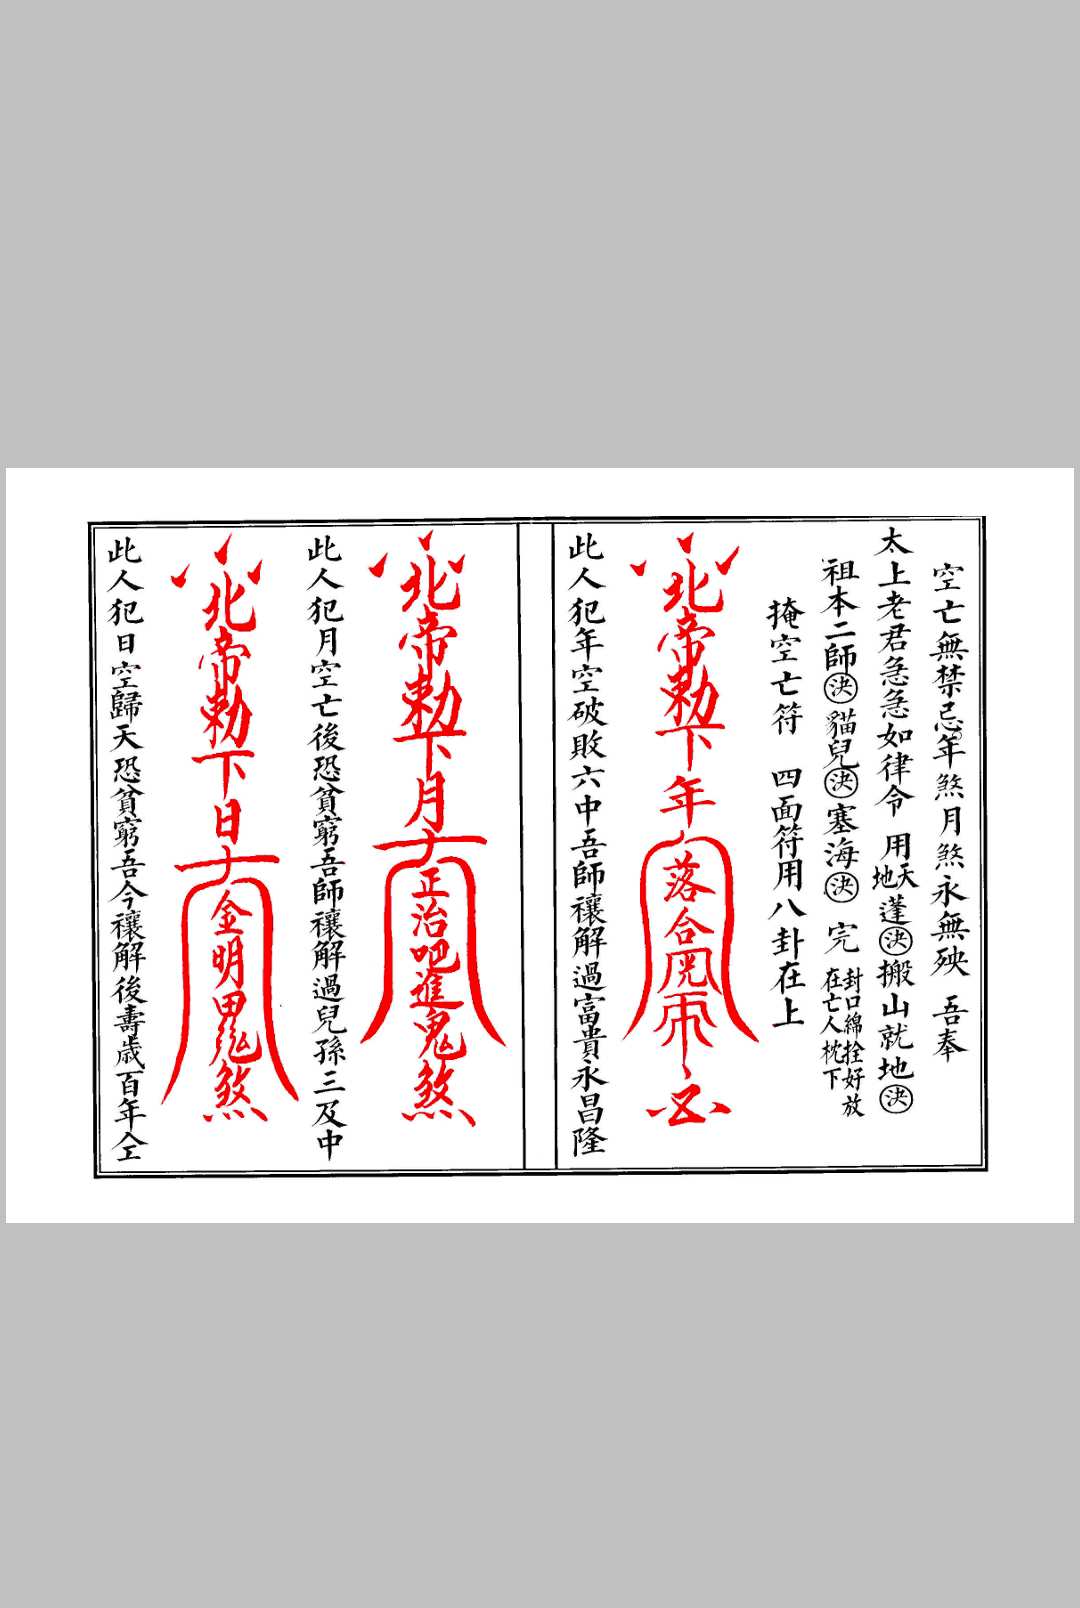 空亡無禁忌年煞月煞永無殃 吾奉
太上老君急急如律令 用天地蓬決搬山就地決
祖本二師決貓兒決塞海決 完 封口綿拴好放在亡人枕下
掩空亡符 四面符用八卦在上
北帝勅下年 落合
此人犯年空破敗六中吾師禳解過富貴永昌隆
北帝勅下月 正治吧進鬼煞
此人犯月空亡後恐貧窮吾師禳解過兒孫三及中
北帝勅下日 金明 煞
此人犯日空歸天恐貧窮吾今禳解後壽歲百年